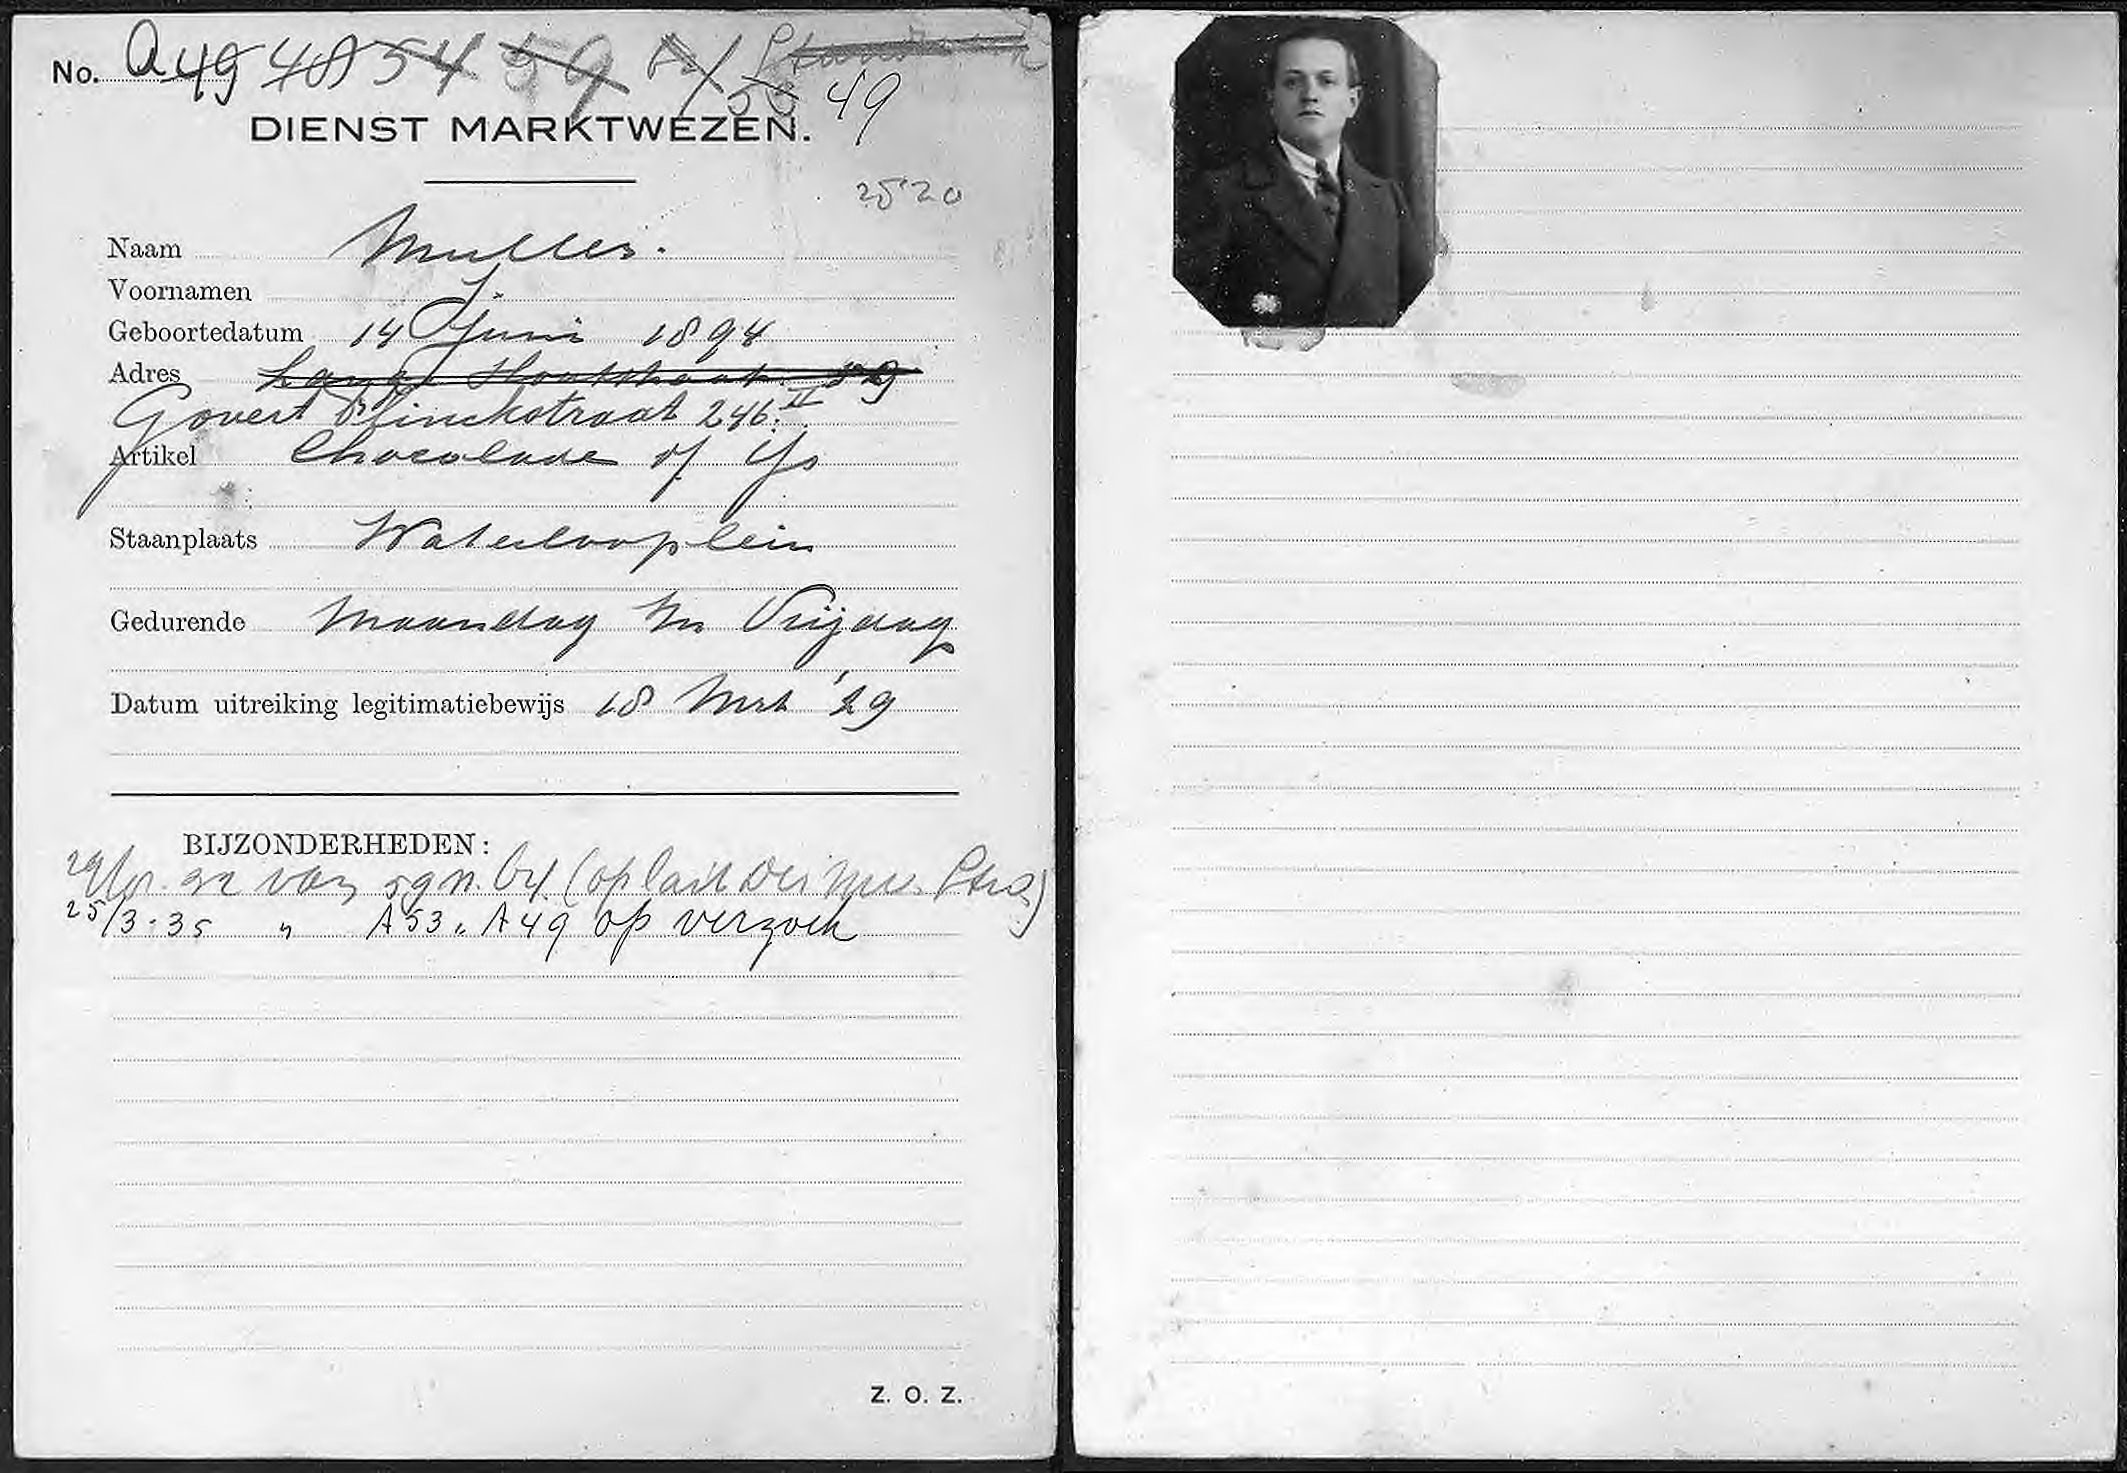 No. A 49 48 54 59 53 49
DIENST MARKTWEZEN.
2520
Naam Muller.
Voornamen J.
Geboortedatum 14 Juni 1894
Adres Lange Houtstraat 59
Govert Flinckstraat 246 II
Artikel Chocolade of Ijs
Staanplaats Waterlooplein
Gedurende Maandag t/m Vrijdag
Datum uitreiking legitimatiebewijs 18 Mrt '29
BIJZONDERHEDEN:
van 59 n. 64 (op last
25/3-35 " A 53 „ A 49 op verzoek
Z. O. Z.